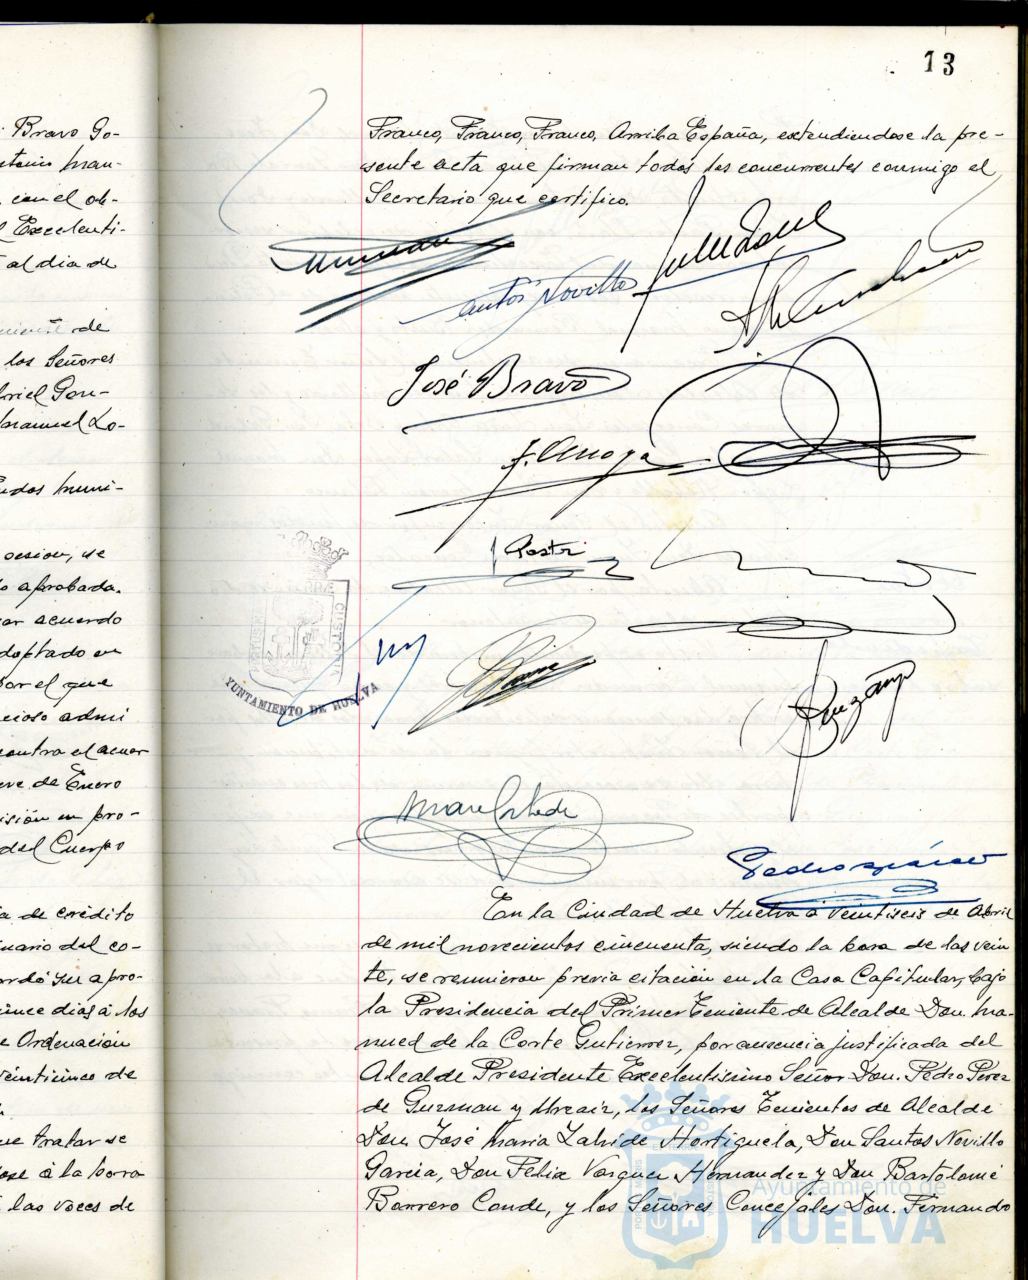 13
. Bravo Go-
tonio Man-
con el ob-
l Excelenti-
al dia de
de
los Señores
briel Gon-
Manuel Lo-
Fondos Muni-
sesion, se
o aprobada.
ar acuerdo
doptado en
por el que
cioso admi
contra el acuer
eve de Enero
isión en pro-
del Cuerpo
a de crédito
inario del co-
rdó su apro-
ince dias á los
e Ordenación
veinticinco de
ue tratar se
dose á la hora
las voces de
Franco, Franco, Franco, Arriba España, extendiendose la pre-
sente acta que firman todos los concurrentes conmigo el
Secretario que certifico.
Santos Novillo
José Bravo
CUSTODIA
AYUNTAMIENTO DE HUELVA
En la Ciudad de Huelva a veintiseis de Abril
de mil novecientos cincuenta, siendo la hora de las vein
te, se reunieron previa citación en la Casa Capitular, bajo
la Presidencia del Primer Teniente de Alcalde Don Ma-
nuel de la Corte Gutierrez, por ausencia justificada del
Alcalde Presidente Excelentisimo Señor Don Pedro Perez
de Guzman y Urzaiz, los Señores Tenientes de Alcalde
Don José Maria Zalvide Hortiguela, Don Santos Novillo
Garcia, Don Felix Vazquez Hernandez y Don Bartolomé
Borrero Conde, y los Señores Concejales Don Fernando
Ayuntamiento de
HUELVA